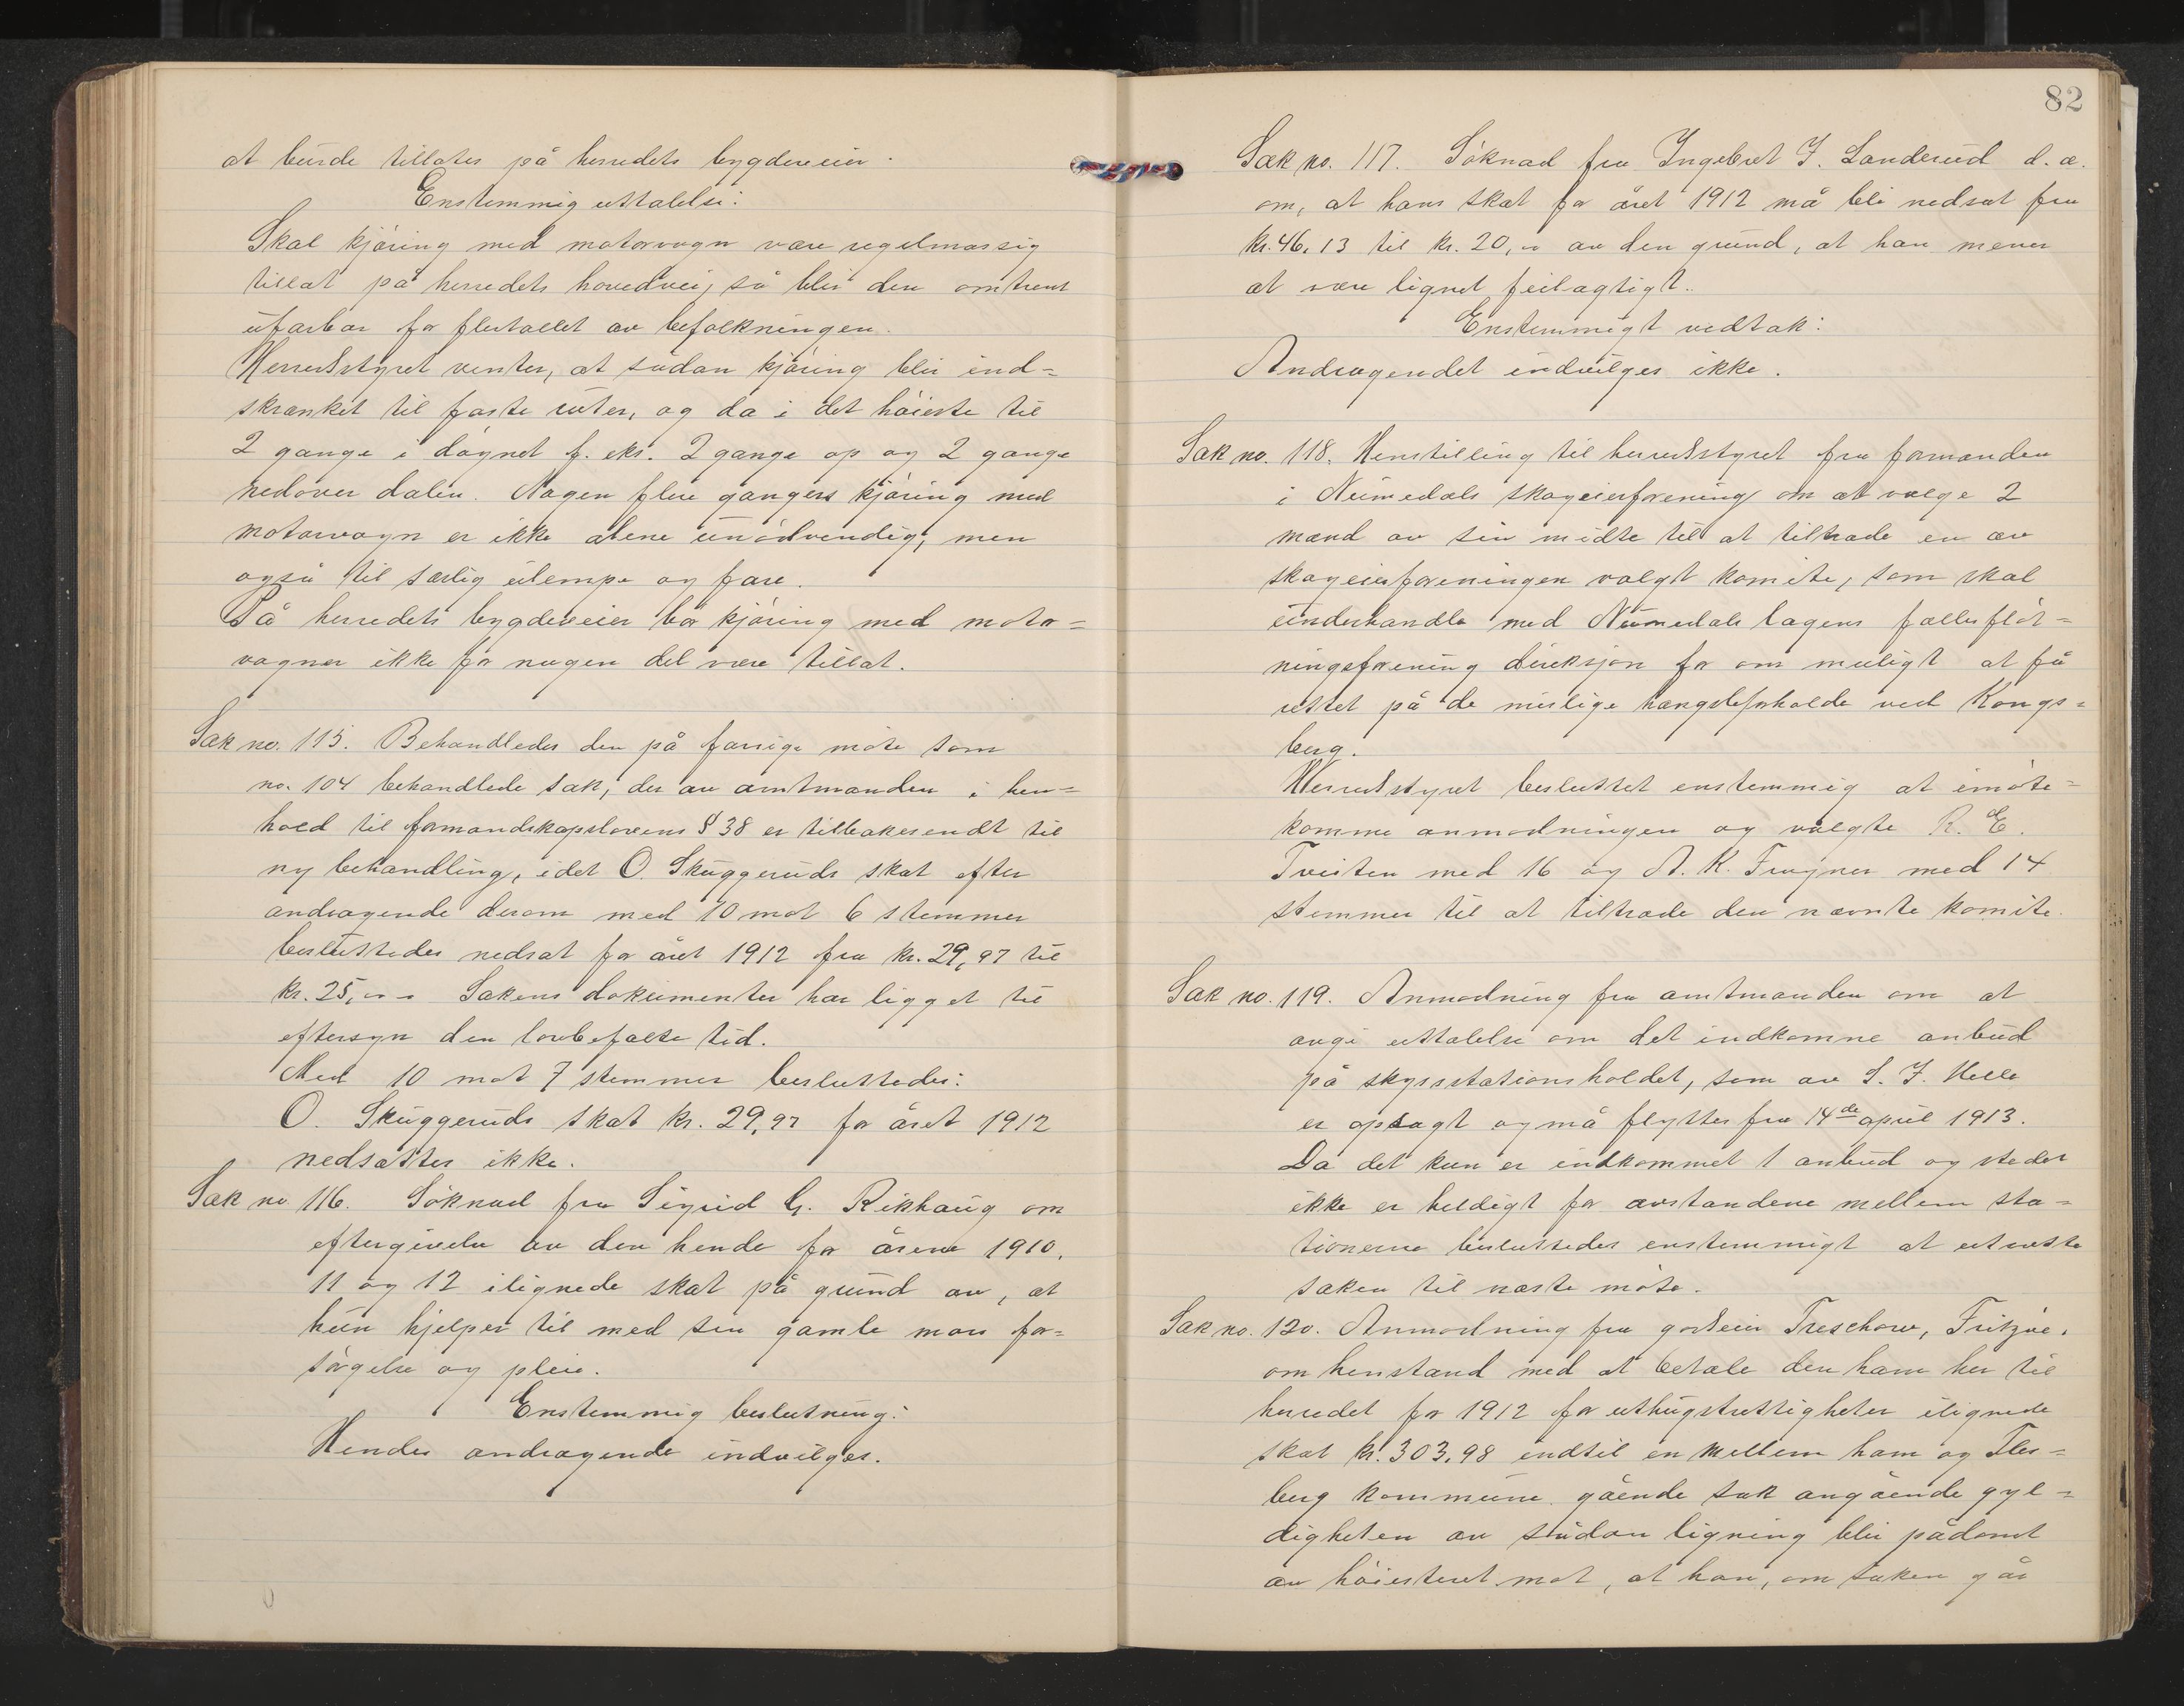 at burde tillates på herredets bygdeveier.
Enstemmig uttalelse:
Skal kjöring med motorvogn være regelmæssig
tillat på herredets hovedvei, så blir den omtrent
ufarbar for flertallet av befolkningen.
Herredsstyret venter, at sådan kjöring blir ind=
skrænket til faste ruter, og da i det höieste til
2 gange i dögnet f. eks. 2 gange op og 2 gange
nedover dalen. Nogen flere gangers kjöring med
motorvogn er ikke alene unödvendig, men
også til særlig ulempe og fare.
På herredets bygdeveier bör kjöring med motor=
vogner ikke for nogen del være tillat.
Sak no. 115. Behandledes den på forrige möte som
no. 104 behandlede sak, der av amtmanden i hen=
hold til formandskapslovens § 38 er tilbakesendt til
ny behandling, idet O. Skuggeruds skat efter
andragende derom med 10 mot 6 stemmer
besluttedes nedsat for året 1912 fra kr. 29,97 til
kr. 25,00 Sakens dokumenter har ligget til
eftersyn den lovbefalte tid.
Med 10 mot 7 stemmer besluttedes:
O. Skuggeruds skat kr. 29,97 for året 1912
nedsættes ikke.
Sak no 116. Söknad fra Sigrid G. Rikhaug om
eftergivelse av den hende for årene 1910,
11 og 12 ilignede skat på grund av, at
hun hjelper til med sin gamle mors for=
sörgelse og pleie.
Enstemmig beslutning:
Hendes andragende indvilges.
82
Sak no. 117. Söknad fra Ingebret J. Landerud d. æ.
om, at hans skat for året 1912 må bli nedsat fra
kr. 46,13 til kr. 20,00 av den grund, at han mener
at være lignet feilagtigt.
Enstemmigt vedtak:
Andragendet indvilges ikke.
Sak no. 118. Henstilling til herredsstyret fra formanden
i Numedals skogeierforening om at vælge 2
mænd av sin midte til at tiltræde en av
skogeierforeningen valgt komite, som skal
underhandle med Numedals lagens fællesflöt=
ningsforening direksjon for om muligt at få
rettet på de mislige hængsleforholde ved Kongs=
berg.
Herredsstyret besluttet enstemmig at imöte=
komme anmodningen og valgte R. E.
Tveiten med 16 og A. K. Frogner med 14
stemmer til at tiltræde den nævnte komite.
Sak no. 119. Anmodning fra amtmanden om at
avgi uttalelse om det indkomne anbud
på skysstationsholdet, som av S. J. Helle
er opsagt og må flyttes fra 14de april 1913.
Da det kun er indkommet 1 anbud og stedet
ikke er heldigt for avstandene mellem sta=
tionerne besluttedes enstemmigt at utsætte
saken til næste möte.
Sak no. 120. Anmodning fra godseier Treschow, Fritzöe,
om henstand med at betale den ham her til
herredet for 1912 for uthugstrettigheter ilignede
skat kr. 303,98 indtil en mellem ham og Fles=
berg kommune gående sak angående gyl=
digheten av sådan ligning blir pådömt
av höiesteret mot, at han, om saken går